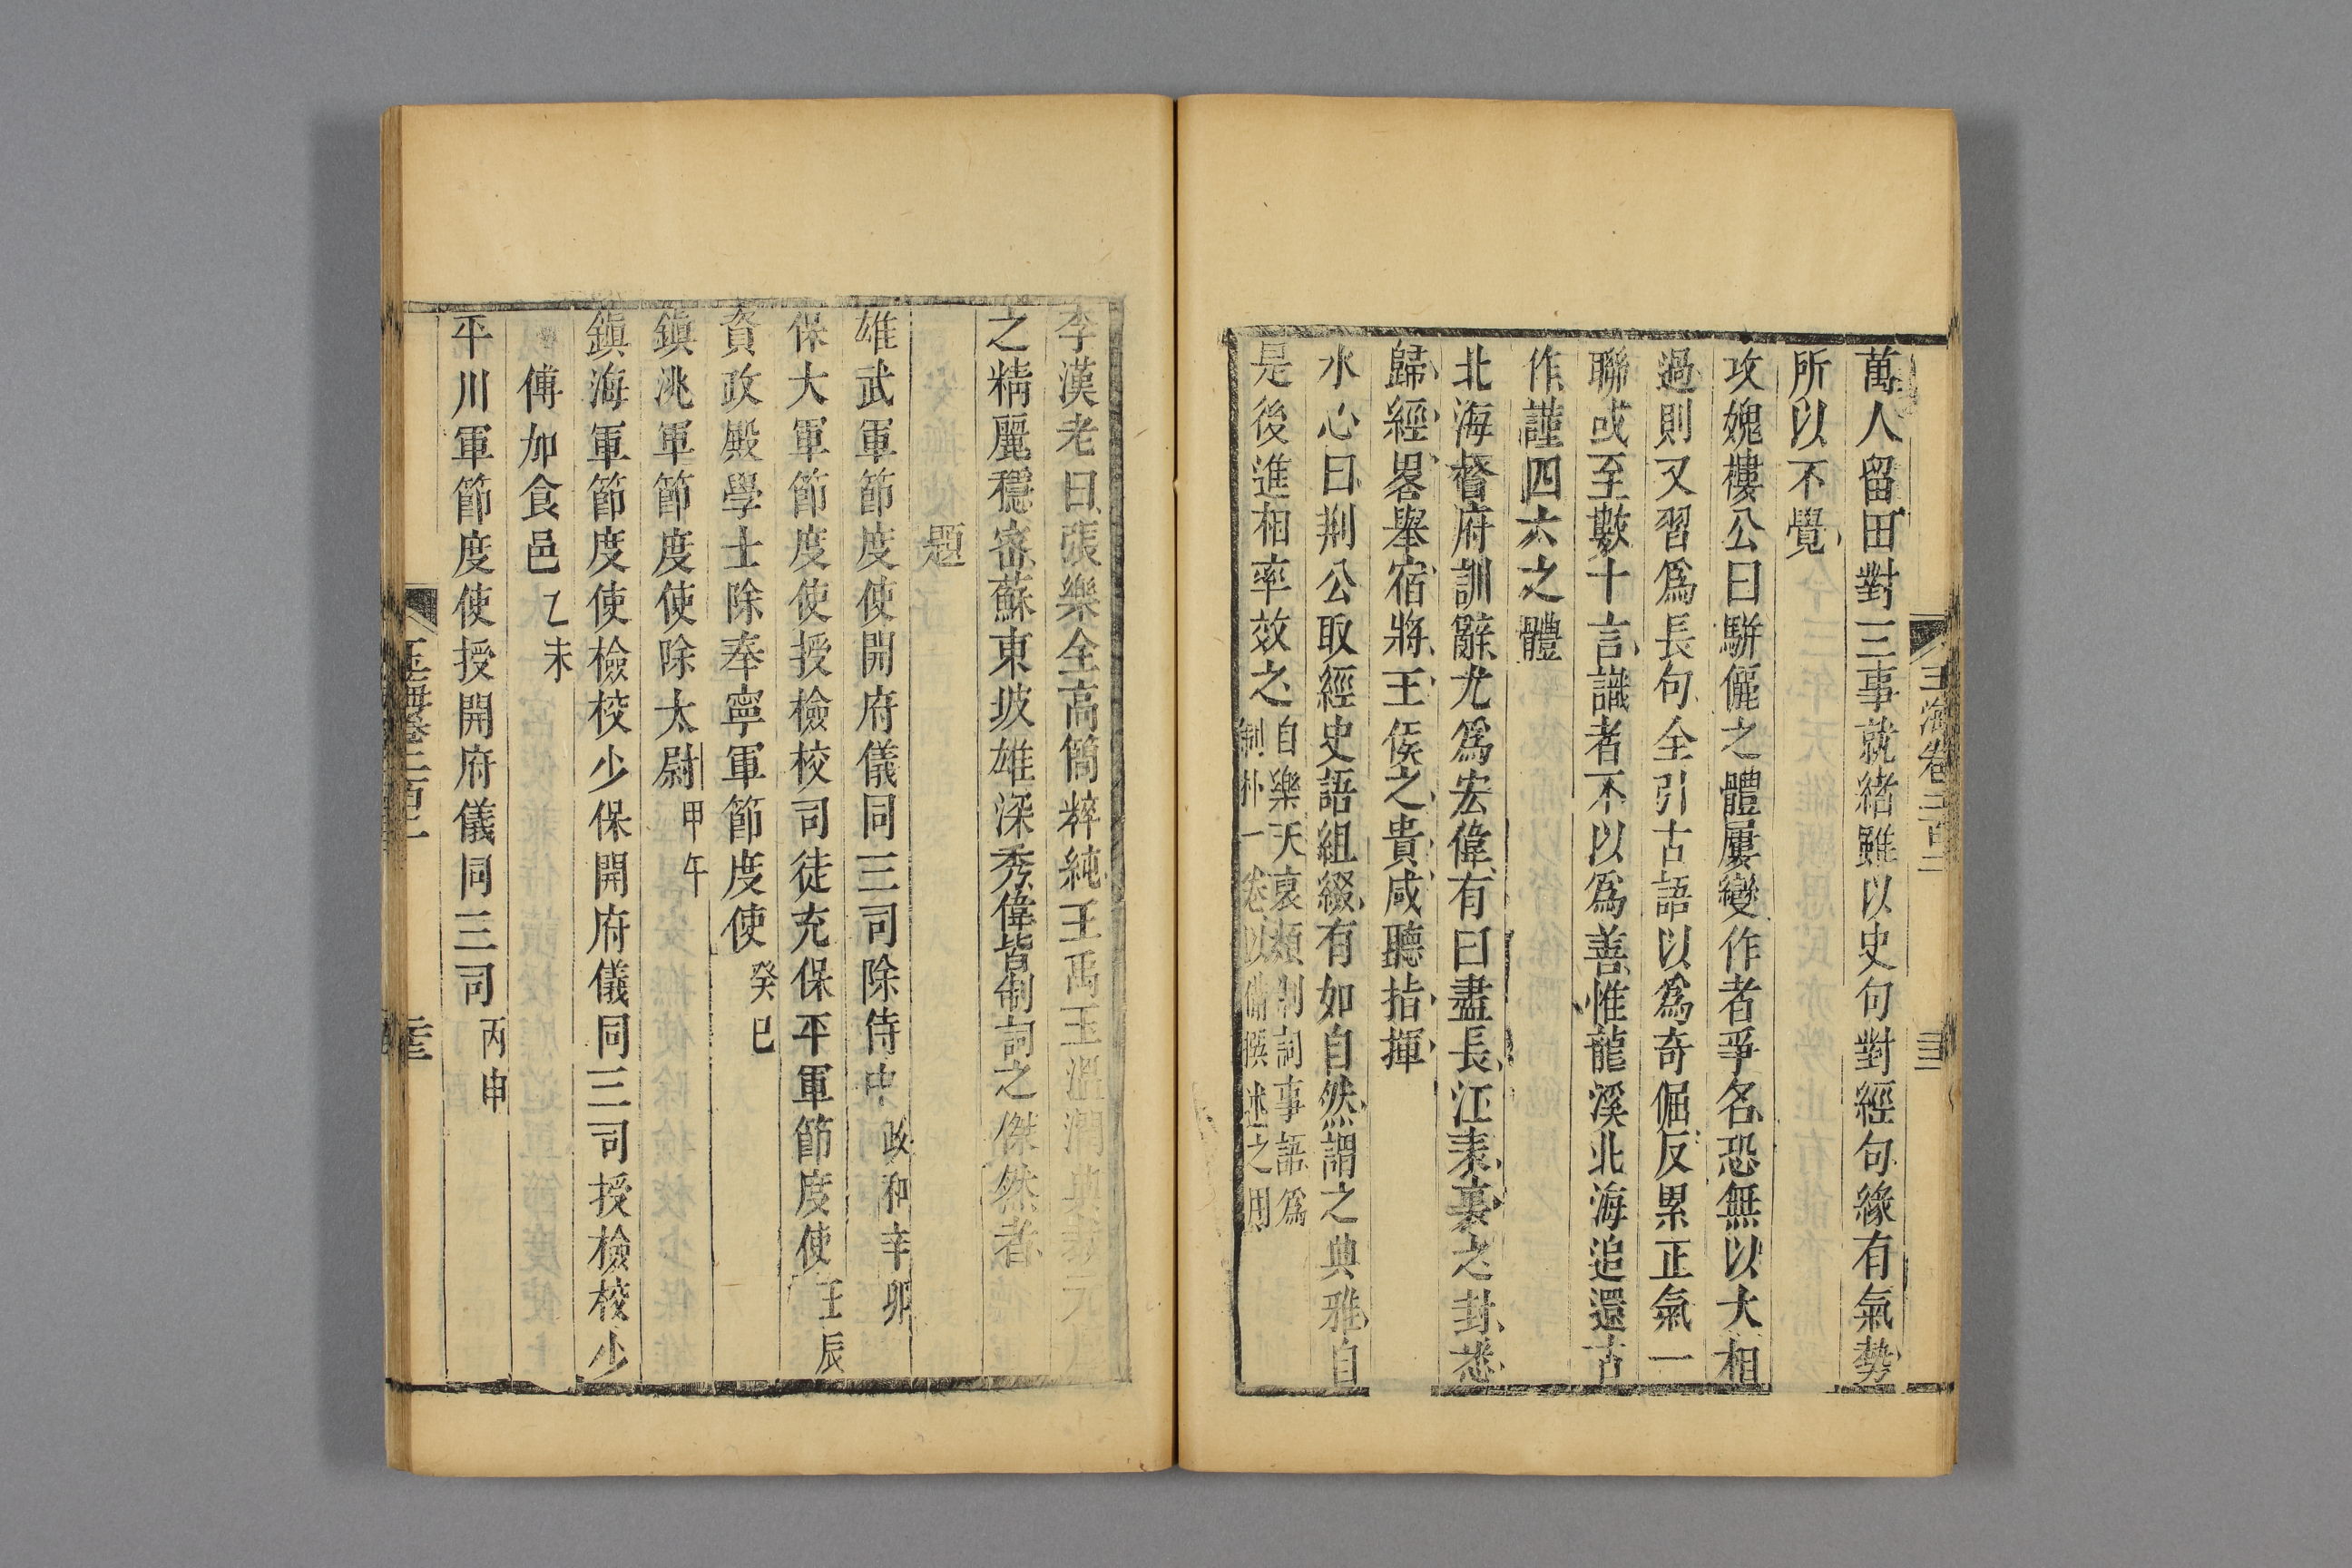 萬人留田對三事就緒雖以史句對經句緣有氣勢
所以不覺
攻媿樓公曰駢儷之體屢變作者爭名恐無以大相
過則又習爲長句全引古語以爲奇倔反累正氣一
聯或至數十言識者不以爲善惟龍溪北海追還古
作謹四六之體
北海督府訓辭尤爲宏偉有曰盡長江表裏之封悉
歸經畧舉宿將王侯之貴咸聽指揮
水心曰荆公取經史語組綴有如自然謂之典雅自
是後進相率效之自樂天裒類制詞事語爲
制朴一卷以備撰述之用
玉海卷二百二
李漢老曰張樂全高簡粹純王禹玉溫潤典裁元
之精麗穩密蘇東坡雄深秀偉皆制詞之傑然者
題
雄武軍節度使開府儀同三司除侍中政和辛卯
保大軍節度使授檢校司徒充保平軍節度使壬辰
資政殿學士除奉寧軍節度使癸巳
鎭洮軍節度使除太尉甲午
鎭海軍節度使檢校少保開府儀同三司授檢校少
傅加食邑乙未
平川軍節度使授開府儀同三司丙申
玉海卷二百二